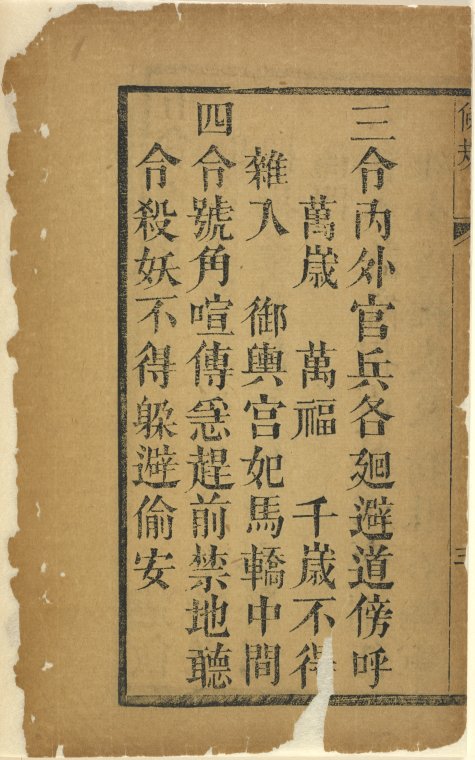 三令內外官兵各廻避道傍呼
萬歲 萬福 千歲不得
雜入 御輿宮妃馬轎中間
四令號角喧傳急趕前禁地聽
令殺妖不得躲避偷安
三